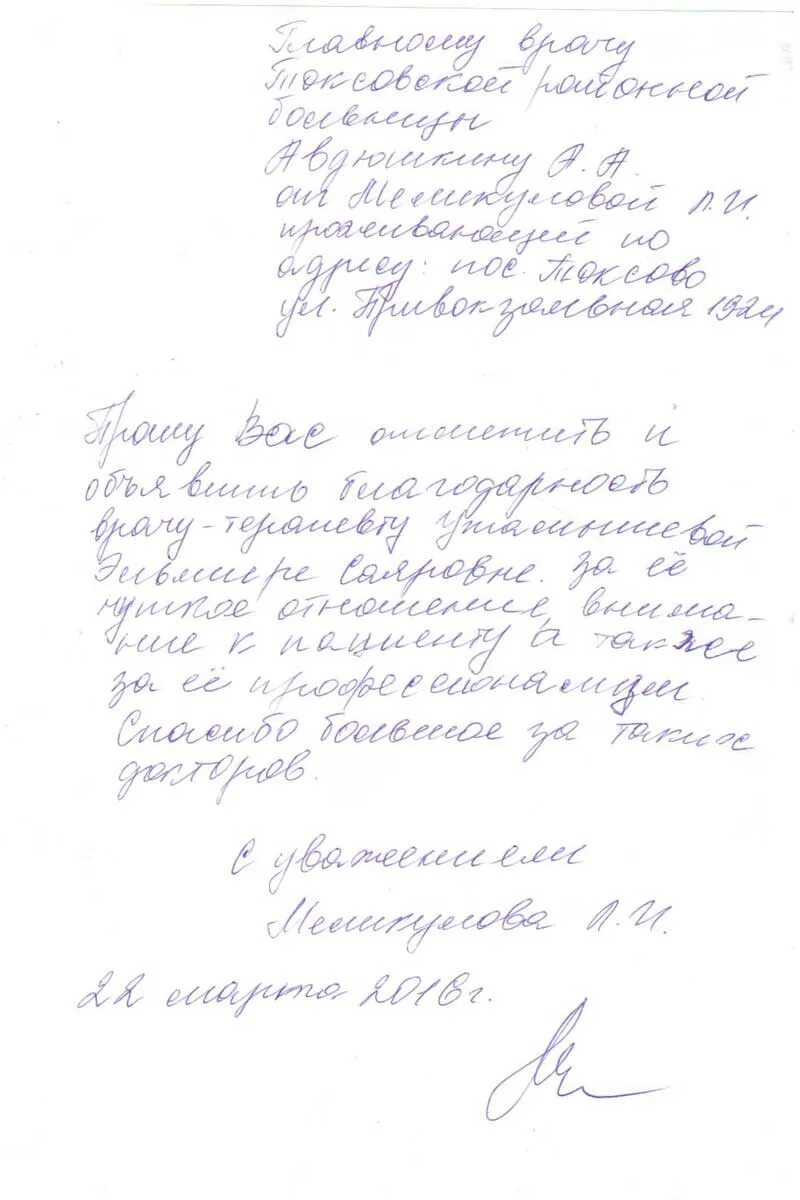 Главному врачу
Токсовской районной
больницы
Авдюшкину А. А.
от Меликуловой Л.И.
проживающей по
адресу: пос. Токсово
ул. Привокзальная
Прошу Вас отметить и
объявить благодарность
врачу-терапевту
Эльмире Саяровне. за её
чуткое отношение, внима-
ние к пациенту а также
за её профессионализм.
Спасибо большое за таких
докторов.
С уважением
Меликулова Л.И.
22 марта 2016г.